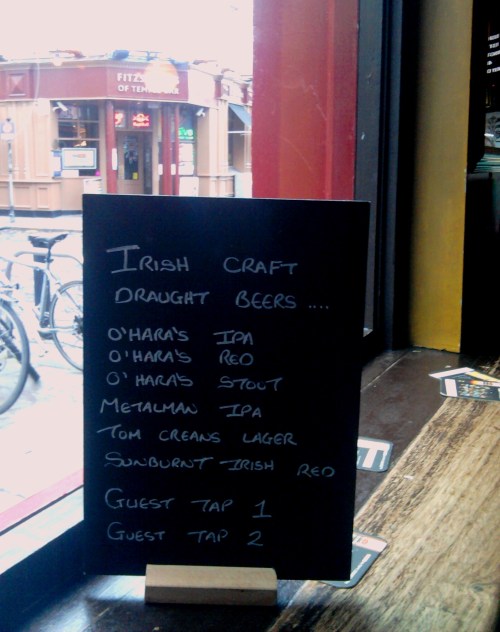 OF TEMPLE BAR
IRISH CRAFT
DRAUGHT BEERS ....
O'HARA'S IPA
O'HARA'S RED
O'HARA'S STOUT
METALMAN IPA
TOM CREANS LAGER
SUNBURNT IRISH RED
GUEST TAP 1
GUEST TAP 2